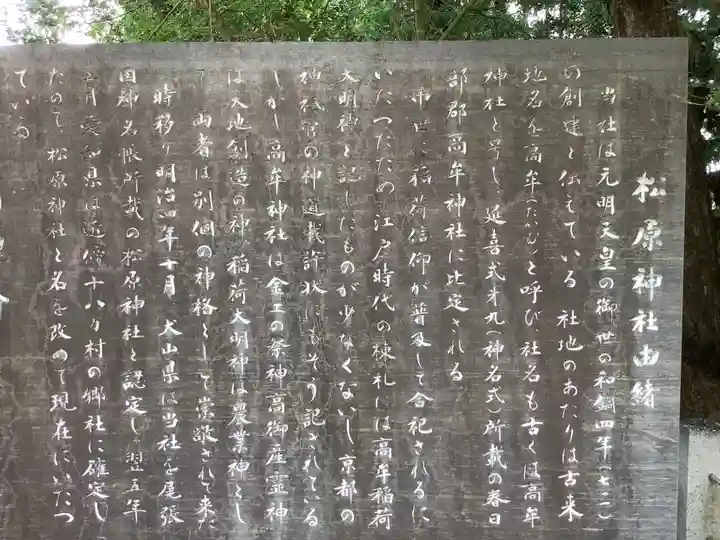 松原神社由緒
当社は元明天皇の御世の和銅四年(七一一)
の創建と伝えている 社地のあたりは古来
地名を高牟(たかむ)と呼び、社名も古くは高牟
神社と号し、延喜式才九(神名式)所載の春日
部郡高牟神社に比定される
中世に稲荷信仰が普及して合祀されるに
いたつたため、江戸時代の棟札には高牟稲荷
大明神と記したものが少なくないし京都の
神祇官の神道裁許状にもそう記されている
しかし高牟神社は金工の祭神高御産霊神
は天地創造の神、稲荷大明神は農業神とし
て 両者は別個の神格として崇敬されて来た
時移り明治四年十月 犬山県は当社を尾張
国神名帳所載の松原神社と認定し 翌五年
月愛知県は近傍十八カ村の郷社に確定し
たので、松原神社と名を改めて現在にいたつ
ている